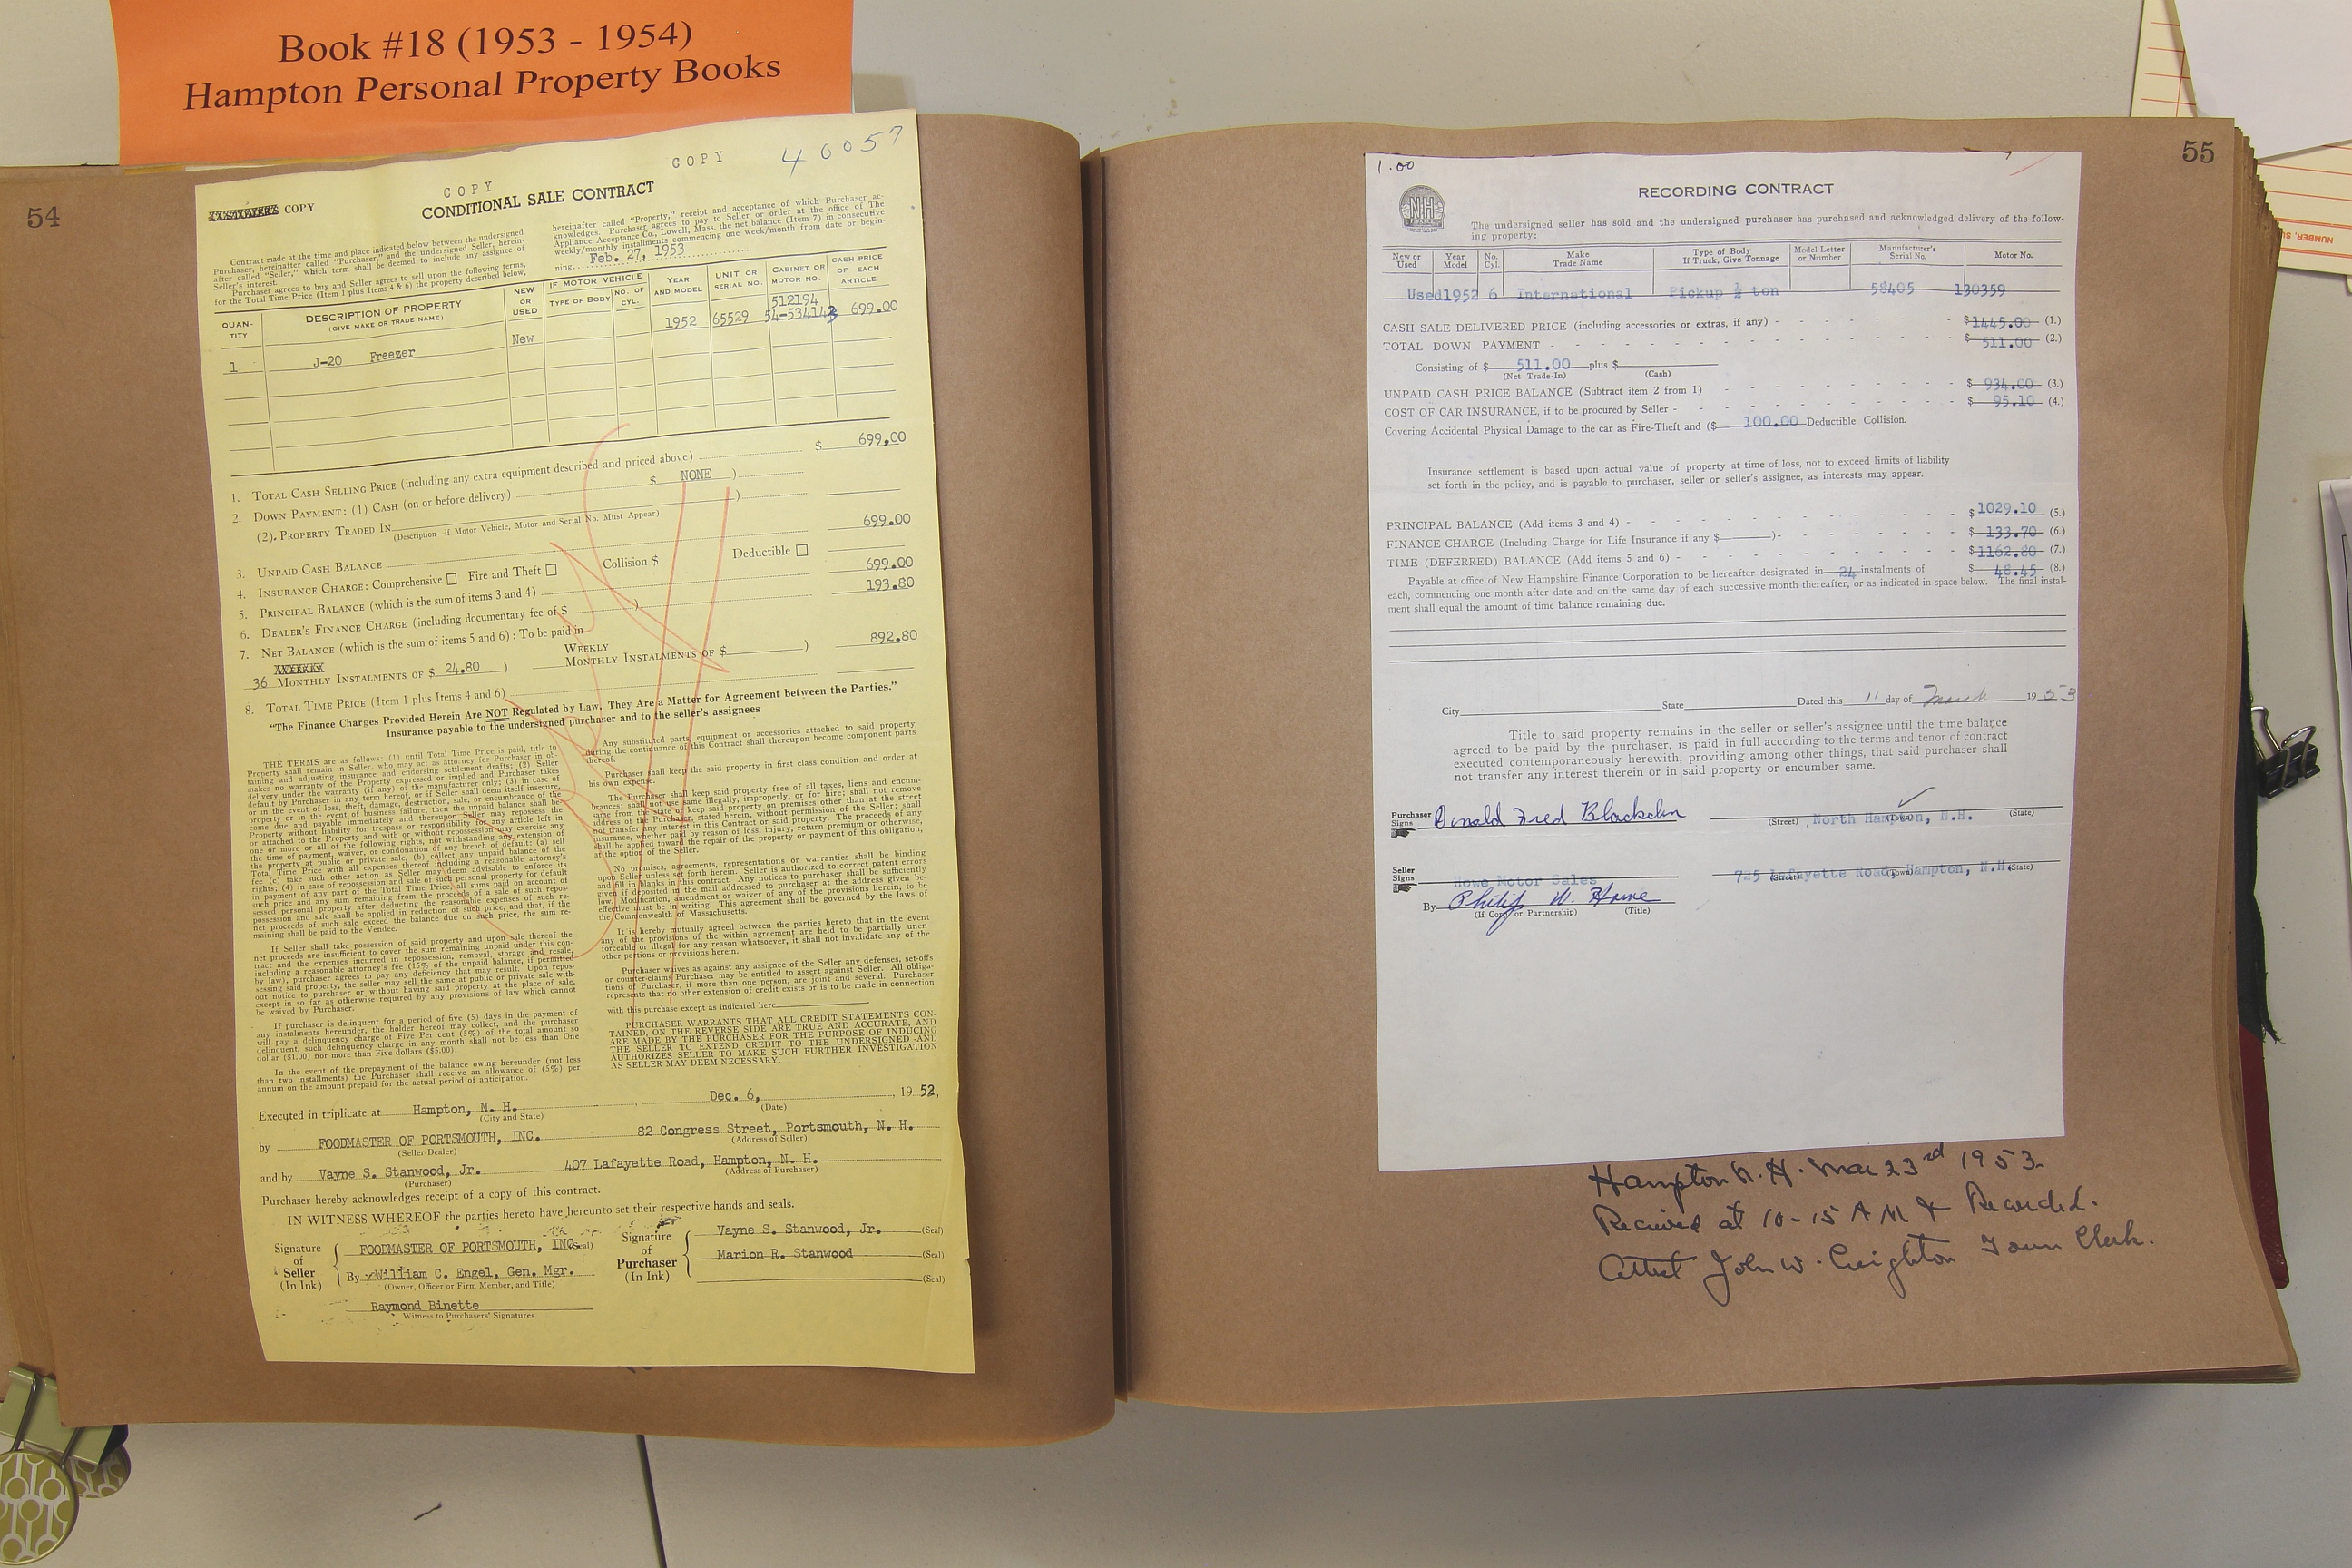 Book #18 (1953 - 1954)
Hampton Personal Property Books
54
COPY
COPY
40057
COPY
CONDITIONAL SALE CONTRACT
Contract made at the time and place indicated below between the undersigned
Purchaser, hereinafter called "Purchaser," and the undersigned Seller, herein-
after called "Seller," which term shall be deemed to include any assignee of
Seller's interest.
Purchaser agrees to buy and Seller agrees to sell upon the following terms,
for the Total Time Price (Item 1 plus Items 4 & 6) the property described below,
hereinafter called "Property," receipt and acceptance of which Purchaser ac-
knowledges. Purchaser agrees to pay to Seller or order at the office of The
Appliance Acceptance Co., Lowell, Mass. the net balance (Item 7) in consecutive
weekly/monthly installments commencing one week/month from date or begin-
ning Feb. 27, 1953
QUAN-TITY DESCRIPTION OF PROPERTY (GIVE MAKE OR TRADE NAME) NEW OR USED IF MOTOR VEHICLE TYPE OF BODY NO. OF CYL. YEAR AND MODEL UNIT OR SERIAL NO. CABINET OR MOTOR NO. CASH PRICE OF EACH ARTICLE
512194
1 J-20 Freezer New 1952 65529 54-534143 699.00
1. TOTAL CASH SELLING PRICE (including any extra equipment described and priced above) $ 699.00
2. DOWN PAYMENT: (1) CASH (on or before delivery) $ NONE )
(2). PROPERTY TRADED IN )
(Description—if Motor Vehicle, Motor and Serial No. Must Appear)
3. UNPAID CASH BALANCE 699.00
4. INSURANCE CHARGE: Comprehensive Fire and Theft Collision $ Deductible
5. PRINCIPAL BALANCE (which is the sum of items 3 and 4) 699.00
6. DEALER'S FINANCE CHARGE (including documentary fee of $ ) 193.80
7. NET BALANCE (which is the sum of items 5 and 6) : To be paid in 892.80
36 MONTHLY INSTALMENTS OF $ 24.80 ) WEEKLY MONTHLY INSTALMENTS OF $ )
8. TOTAL TIME PRICE (Item 1 plus Items 4 and 6)
"The Finance Charges Provided Herein Are NOT Regulated by Law. They Are a Matter for Agreement between the Parties."
Insurance payable to the undersigned purchaser and to the seller's assignees
THE TERMS are as follows: (1) until Total Time Price is paid, title to
Property shall remain in Seller, who may act as attorney for Purchaser in ob-
taining and adjusting insurance and endorsing settlement drafts; (2) Seller
makes no warranty of the Property expressed or implied and Purchaser takes
delivery under the warranty (if any) of the manufacturer only; (3) in case of
default by Purchaser in any term hereof, or if Seller shall deem itself insecure,
or in the event of loss, theft, damage, destruction, sale, or encumbrance of the
property or in the event of business failure, then the unpaid balance shall be
come due and payable immediately and thereupon Seller may repossess the
Property without liability for trespass or responsibility for any article left in
or attached to the Property and with or without repossession may exercise any
one or more or all of the following rights, not withstanding any extension of
the time of payment, waiver, or condonation of any breach of default: (a) sell
the property at public or private sale, (b) collect any unpaid balance of the
Total Time Price with all expenses thereof including a reasonable attorney's
fee (c) take such other action as Seller may deem advisable to enforce its
rights; (4) in case of repossession and sale of such personal property for default
in payment of any part of the Total Time Price, all sums paid on account of
such price and any sum remaining from the proceeds of a sale of such repos-
sessed personal property after deducting the reasonable expenses of such re-
possession and sale shall be applied in reduction of such price, and that, if the
net proceeds of such sale exceed the balance due on such price, the sum re-
maining shall be paid to the Vendee.
If Seller shall take possession of said property and upon sale thereof the
net proceeds are insufficient to cover the sum remaining unpaid under this con-
tract and the expenses incurred in repossession, removal, storage and resale,
including a reasonable attorney's fee (15% of the unpaid balance, if permitted
by law), purchaser agrees to pay any deficiency that may result. Upon repos-
sessing said property, the seller may sell the same at public or private sale with-
out notice to purchaser or without having said property at the place of sale,
except in so far as otherwise required by any provisions of law which cannot
be waived by Purchaser.
If purchaser is delinquent for a period of five (5) days in the payment of
any instalments hereunder, the holder hereof may collect, and the purchaser
will pay a delinquency charge of Five Per cent (5%) of the total amount so
delinquent, such delinquency charge in any month shall not be less than One
dollar ($1.00) nor more than Five dollars ($5.00).
In the event of the prepayment of the balance owing hereunder (not less
than two installments) the Purchaser shall receive an allowance of (5%) per
annum on the amount prepaid for the actual period of anticipation.
Any substituted parts, equipment or accessories attached to said property
during the continuance of this Contract shall thereupon become component parts
thereof.
Purchaser shall keep the said property in first class condition and order at
his own expense.
The Purchaser shall keep said property free of all taxes, liens and encum-
brances; shall not use same illegally, improperly, or for hire; shall not remove
same from the state or keep said property on premises other than at the street
address of the Purchaser, stated herein, without permission of the Seller; shall
not transfer any interest in this Contract or said property. The proceeds of any
insurance, whether paid by reason of loss, injury, return premium or otherwise,
shall be applied toward the repair of the property or payment of this obligation,
at the option of the Seller.
No promises, agreements, representations or warranties shall be binding
upon Seller unless set forth herein. Seller is authorized to correct patent errors
and fill in blanks in this contract. Any notices to purchaser shall be sufficiently
given if deposited in the mail addressed to purchaser at the address given be-
low. Modification, amendment or waiver of any of the provisions herein, to be
effective must be in writing. This agreement shall be governed by the laws of
the Commonwealth of Massachusetts.
It is hereby mutually agreed between the parties hereto that in the event
any of the provisions of the within agreement are held to be partially unen-
forceable or illegal for any reason whatsoever, it shall not invalidate any of the
other portions or provisions herein.
Purchaser waives as against any assignee of the Seller any defenses, set-offs
or counter-claims Purchaser may be entitled to assert against Seller. All obliga-
tions of Purchaser, if more than one person, are joint and several. Purchaser
represents that no other extension of credit exists or is to be made in connection
with this purchase except as indicated here
PURCHASER WARRANTS THAT ALL CREDIT STATEMENTS CON-
TAINED, ON THE REVERSE SIDE ARE TRUE AND ACCURATE, AND
ARE MADE BY THE PURCHASER FOR THE PURPOSE OF INDUCING
THE SELLER TO EXTEND CREDIT TO THE UNDERSIGNED -AND
AUTHORIZES SELLER TO MAKE SUCH FURTHER INVESTIGATION
AS SELLER MAY DEEM NECESSARY.
Executed in triplicate at Hampton, N. H. Dec. 6, , 19 52,
(City and State) (Date)
by FOODMASTER OF PORTSMOUTH, INC. 82 Congress Street, Portsmouth, N. H.
(Seller-Dealer) (Address of Seller)
and by Vayne S. Stanwood, Jr. 407 Lafayette Road, Hampton, N. H.
(Purchaser) (Address of Purchaser)
Purchaser hereby acknowledges receipt of a copy of this contract.
IN WITNESS WHEREOF the parties hereto have hereunto set their respective hands and seals.
Signature of Seller (In Ink) FOODMASTER OF PORTSMOUTH, INC. (Seal)
By William C. Engel, Gen. Mgr.
(Owner, Officer or Firm Member, and Title)
Signature of Purchaser (In Ink) Vayne S. Stanwood, Jr. (Seal)
Marion R. Stanwood (Seal)
(Seal)
Raymond Binette
Witness to Purchasers' Signatures
55
1.00
NH
RECORDING CONTRACT
The undersigned seller has sold and the undersigned purchaser has purchased and acknowledged delivery of the follow-
ing property:
New or Used Year Model No. Cyl. Make Trade Name Type of Body If Truck, Give Tonnage Model Letter or Number Manufacturer's Serial No. Motor No.
Used 1952 6 International Pickup ½ ton 58405 130359
CASH SALE DELIVERED PRICE (including accessories or extras, if any) - $ 1445.00 (1.)
TOTAL DOWN PAYMENT - $ 511.00 (2.)
Consisting of $ 511.00 plus $
(Net Trade-In) (Cash)
UNPAID CASH PRICE BALANCE (Subtract item 2 from 1) - $ 934.00 (3.)
COST OF CAR INSURANCE, if to be procured by Seller - $ 95.10 (4.)
Covering Accidental Physical Damage to the car as Fire-Theft and ($ 100.00 Deductible Collision.
Insurance settlement is based upon actual value of property at time of loss, not to exceed limits of liability
set forth in the policy, and is payable to purchaser, seller or seller's assignee, as interests may appear.
PRINCIPAL BALANCE (Add items 3 and 4) - $ 1029.10 (5.)
FINANCE CHARGE (Including Charge for Life Insurance if any $ )- $ 133.70 (6.)
TIME (DEFERRED) BALANCE (Add items 5 and 6) - $ 1162.80 (7.)
Payable at office of New Hampshire Finance Corporation to be hereafter designated in 24 instalments of $ 48.45 (8.)
each, commencing one month after date and on the same day of each successive month thereafter, or as indicated in space below. The final instal-
ment shall equal the amount of time balance remaining due.
City State Dated this 11 day of March 19 53
Title to said property remains in the seller or seller's assignee until the time balance
agreed to be paid by the purchaser, is paid in full according to the terms and tenor of contract
executed contemporaneously herewith, providing among other things, that said purchaser shall
not transfer any interest therein or in said property or encumber same.
Purchaser Signs Donald Fred Blackden North Hampton, N.H.
(Street) (Town) (State)
Seller Signs Howe Motor Sales 725 Lafayette Road, Hampton, N.H.
(Street) (Town) (State)
By Philip W. Howe
(If Corp. or Partnership) (Title)
Hampton N. H. Mar 23rd 1953.
Received at 10-15 AM & Recorded.
Attest John W. Creighton Town Clerk.
NUMBER, SU